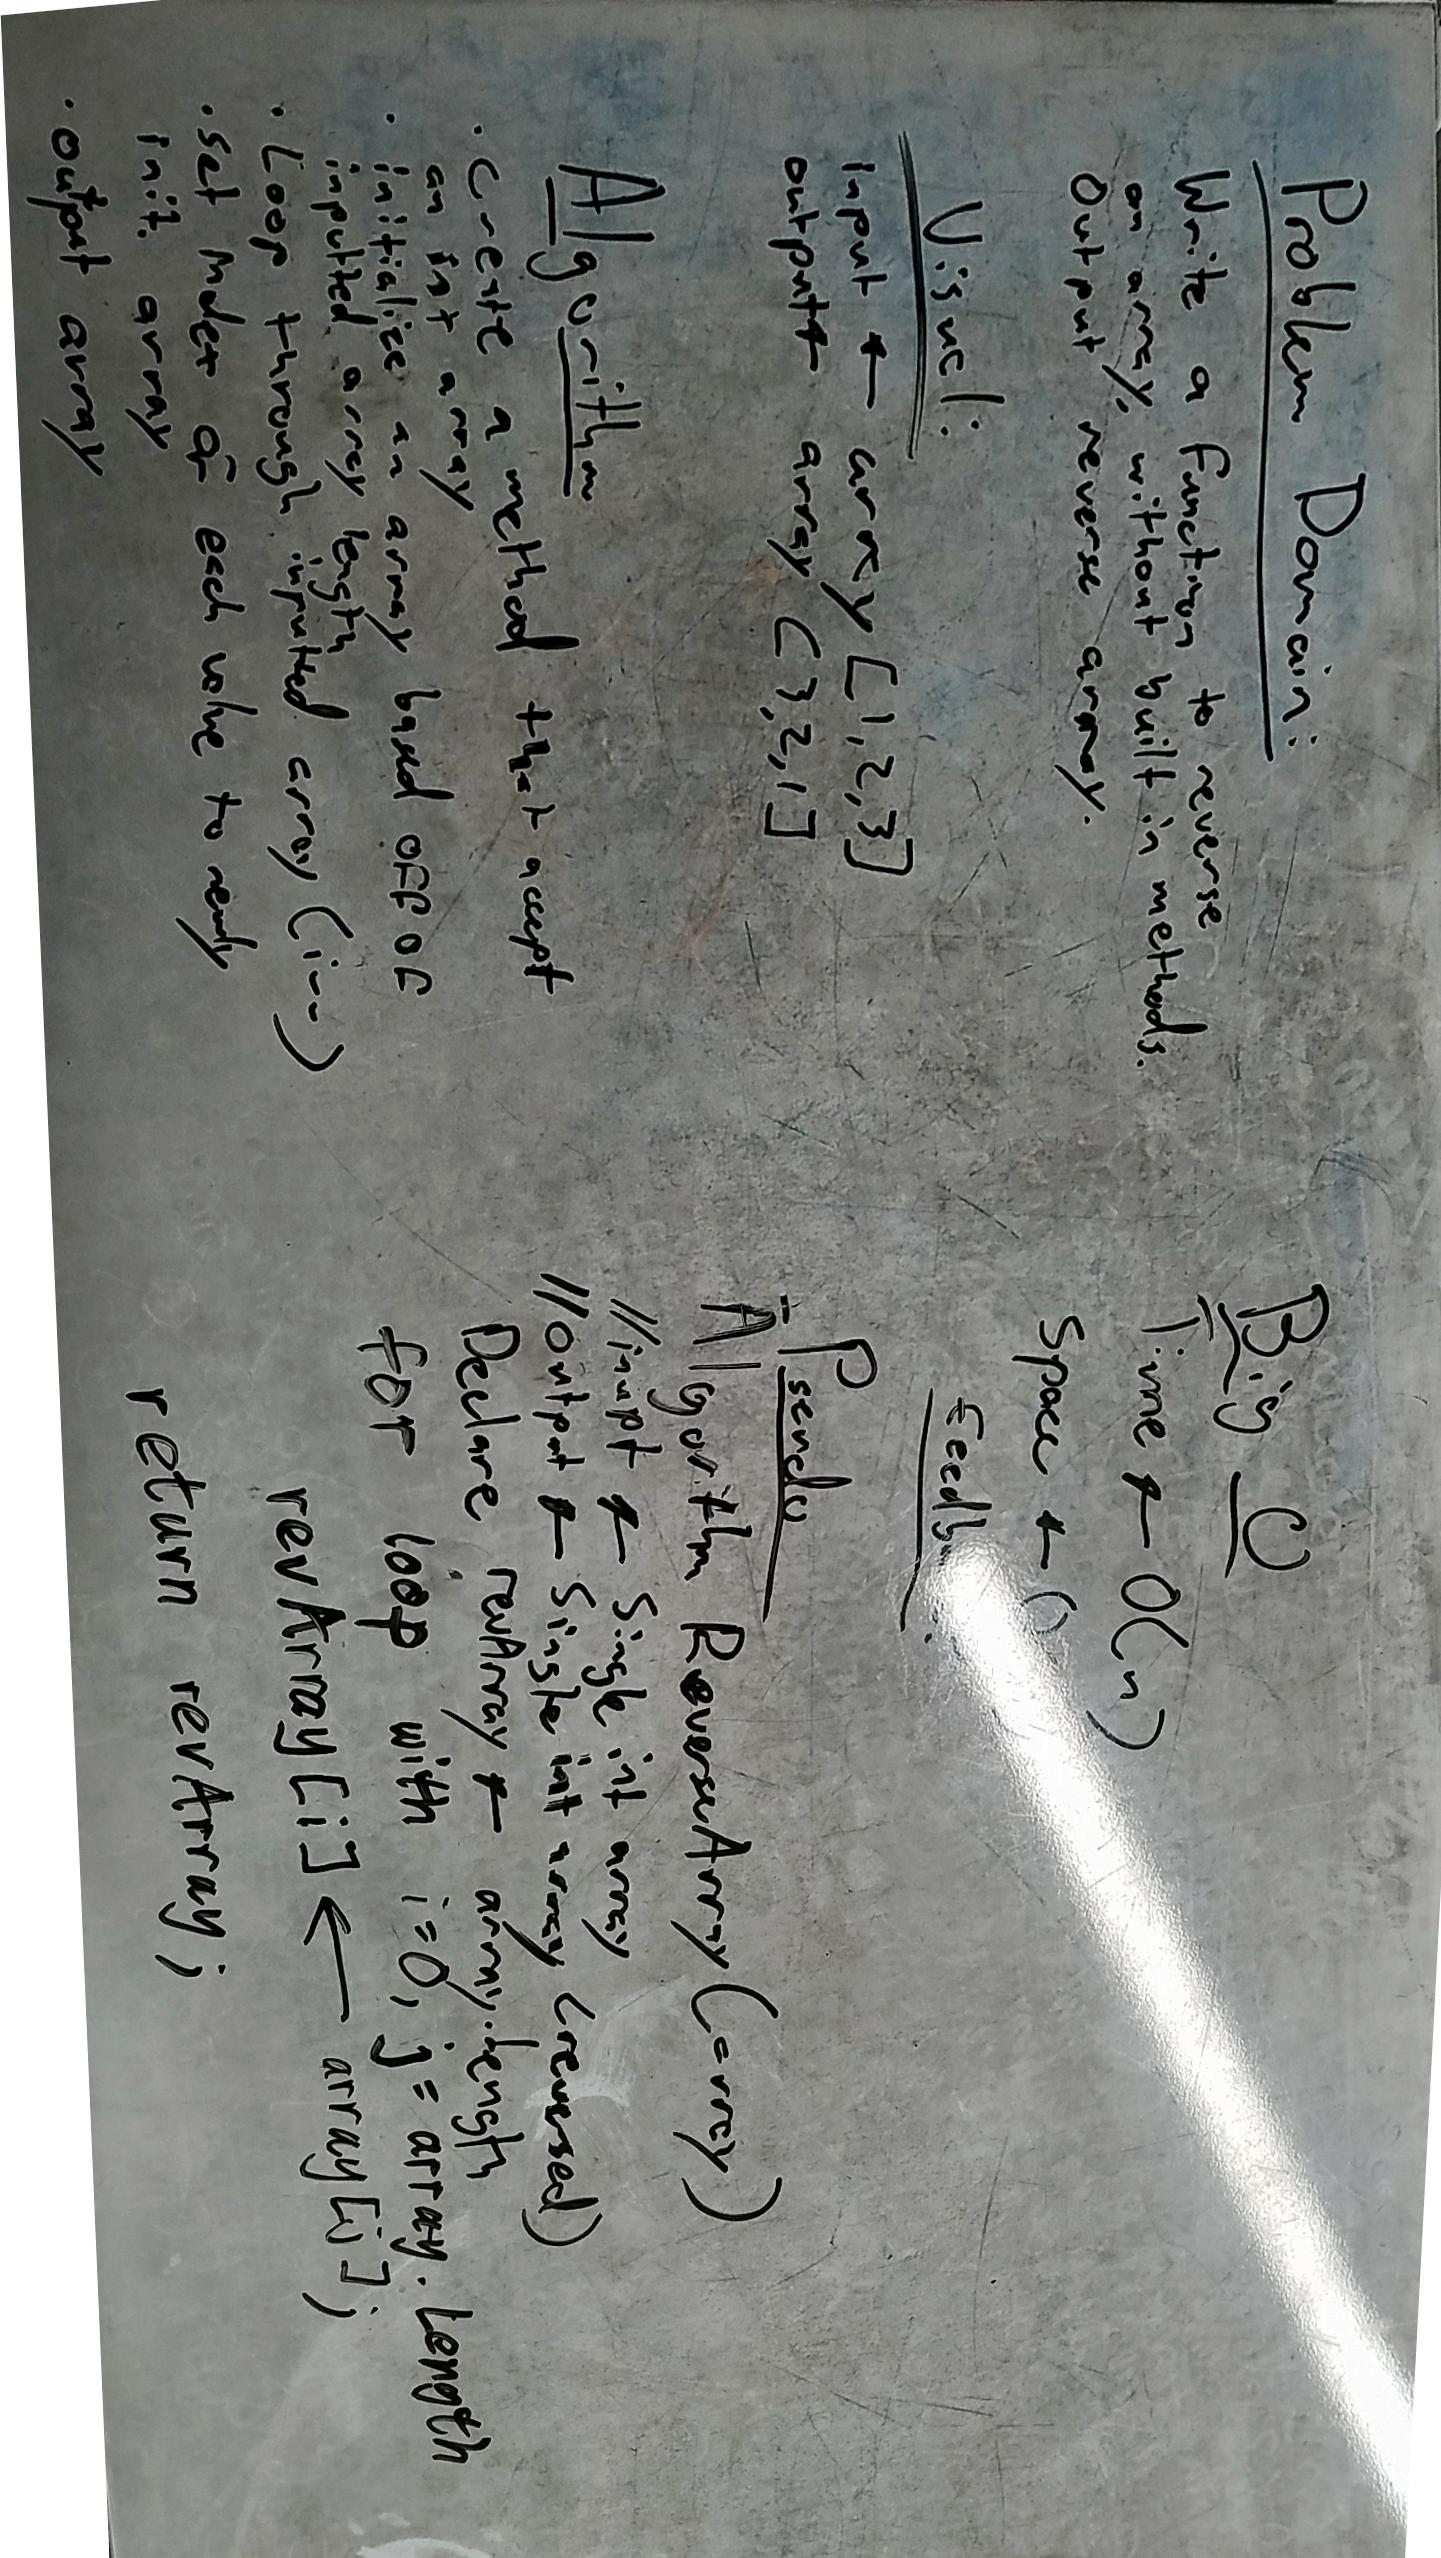 Problem Domain:
Write a function to reverse
an array, without built in methods.
Output reverse array.
Visual:
input ← array [1,2,3]
output← array [3,2,1]
Algorithm
· create a method that accept
an int array
· initialize an array based off of
inputted array length
· Loop through inputted array (i--)
· set index of each value to newly
init. array
· output array
Big O
Time ← O(n)
Space ←
Pseudo
Algorithm ReverseArray(array)
//inupt ← Single int array
//output ← Single int array (reversed)
Declare revArray ← array.length
for loop with i=0, j= array.Length
revArray[i] ← array[j];
return revArray;